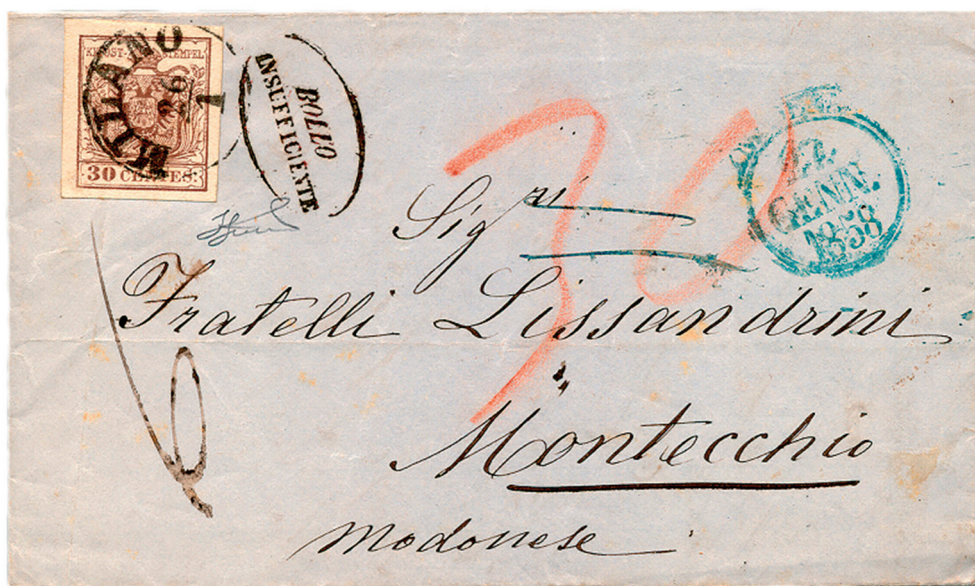 MILANO
26
1
30 CENTES:
BOLLO
INSUFFICIENTE
30
27
GENN.
1858
Sigri
Fratelli Lissandrini
Montecchio
modonese
6